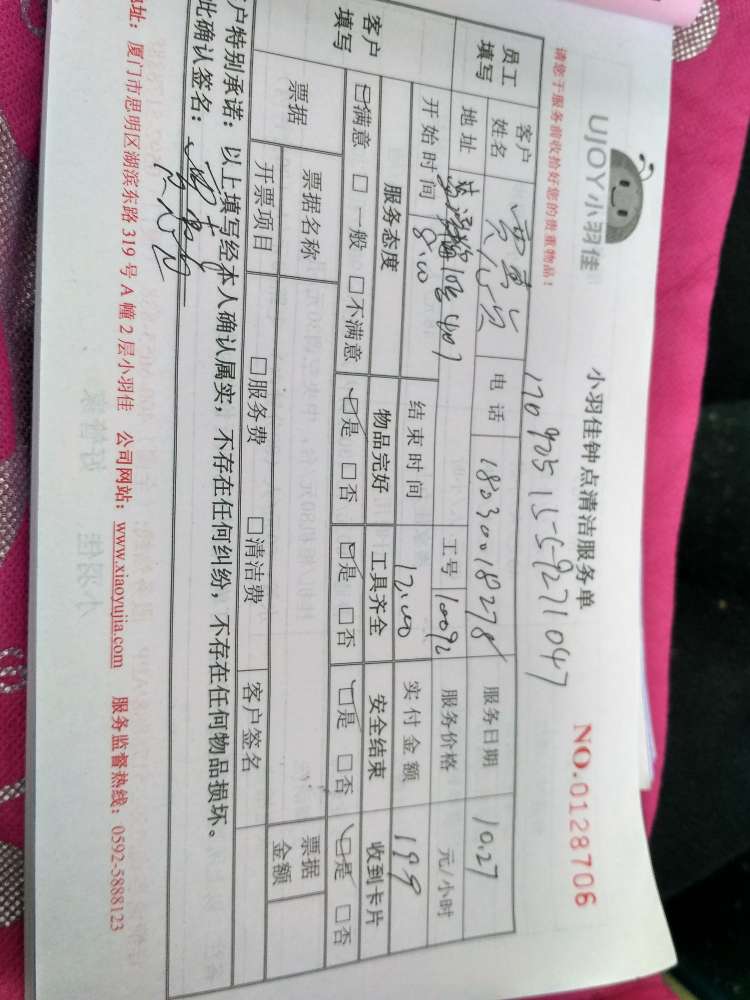 UJOY小羽佳
小羽佳钟点清洁服务单
NO.0128706
请您于服务前收拾好您的贵重物品！
员工填写 客户姓名 电话 18030018278 服务日期 10.27
地址 407 工号 10092 服务价格 元/小时
开始时间 8:00 结束时间 12:00 实付金额 199
客户填写 服务态度 物品完好 工具齐全 安全结束 收到卡片
☑满意 □一般 □不满意 ☑是 □否 ☑是 □否 ☑是 □否 ☑是 □否
票据 票据名称 票据金额
开票项目 □服务费 □清洁费 客户签名
户特别承诺：以上填写经本人确认属实，不存在任何纠纷，不存在任何物品损坏。
此确认签名：
址：厦门市思明区湖滨东路 319 号 A 幢 2 层小羽佳 公司网站：www.xiaoyujia.com 服务监督热线：0592-5888123